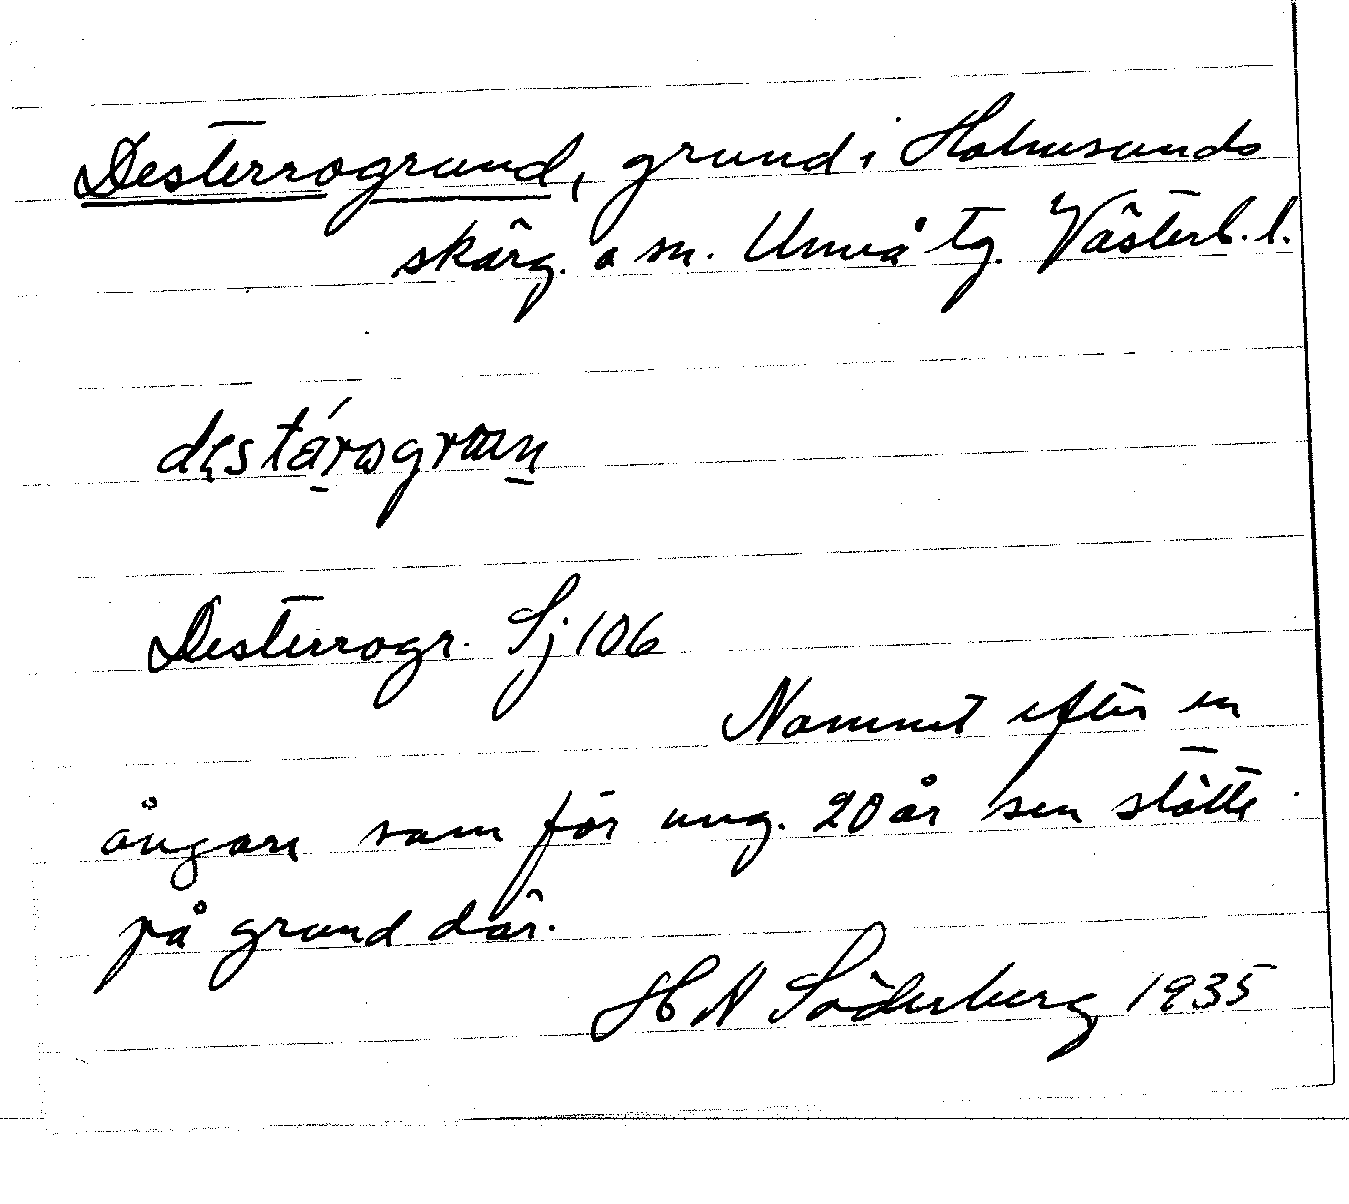 Desterrogrund, grund i Holmsunds
skärg. o sn. Umeå tg. Västerb. l.
Desterrogr. Sj 106
Namnet efter en
ångare som för ung. 20 år sen stötte
på grund där.
H N Söderberg 1935